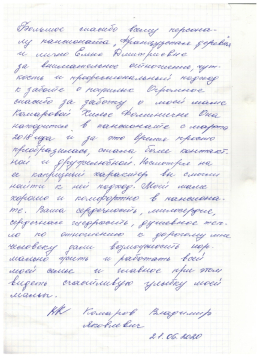 Большое спасибо всему персона-
лу пансионата "Французская деревня"
и лично Елене Дмитриевне
за внимательное отношение, чут-
кость и профессиональный подход
к заботе о пожилых. Огромное
спасибо за заботу о моей маме
Комаровой Она
находится в пансионате с марта
2018 года и за это время просто
преобразилась, стала более контакт-
ной и дружелюбной. Несмотря на
её капризный характер вы смогли
найти к ней подход. Моей маме
хорошо и комфортно в пансиона-
те. Ваша сердечность, милосердие,
сердечная щедрость, душевное теп-
ло по отношению к дорогому мне
человеку дают возможность нор-
мально жить и работать всей
моей семье и главное при этом
видеть счастливую улыбку моей
мамы.
Комаров Владимир
Яковлевич
21.06.2020